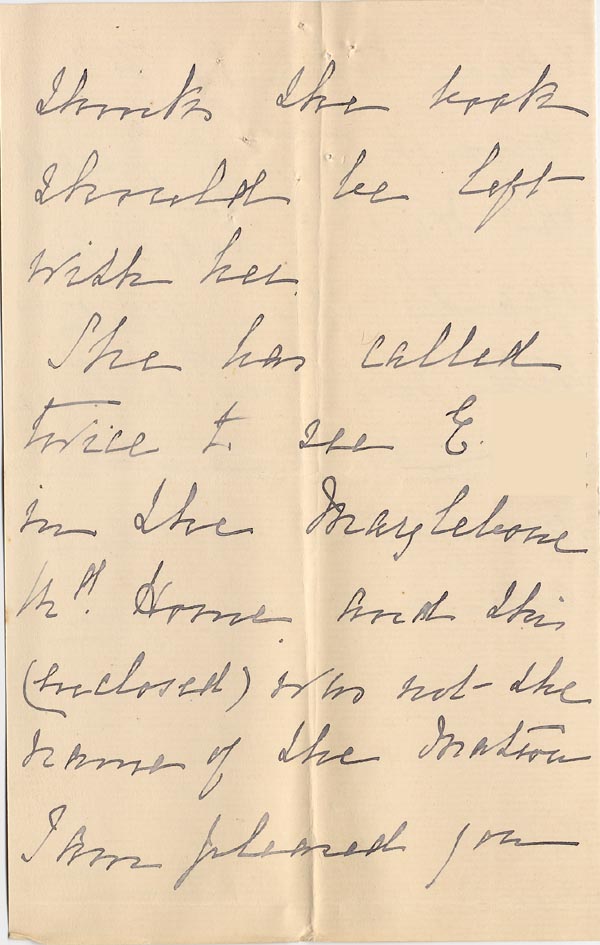 thinks the book
should be left
with her.
She has called
twice to see E.
in the Marylebone
Rd. Home, and this
(enclosed) was not the
name of the Matron
I am pleased you